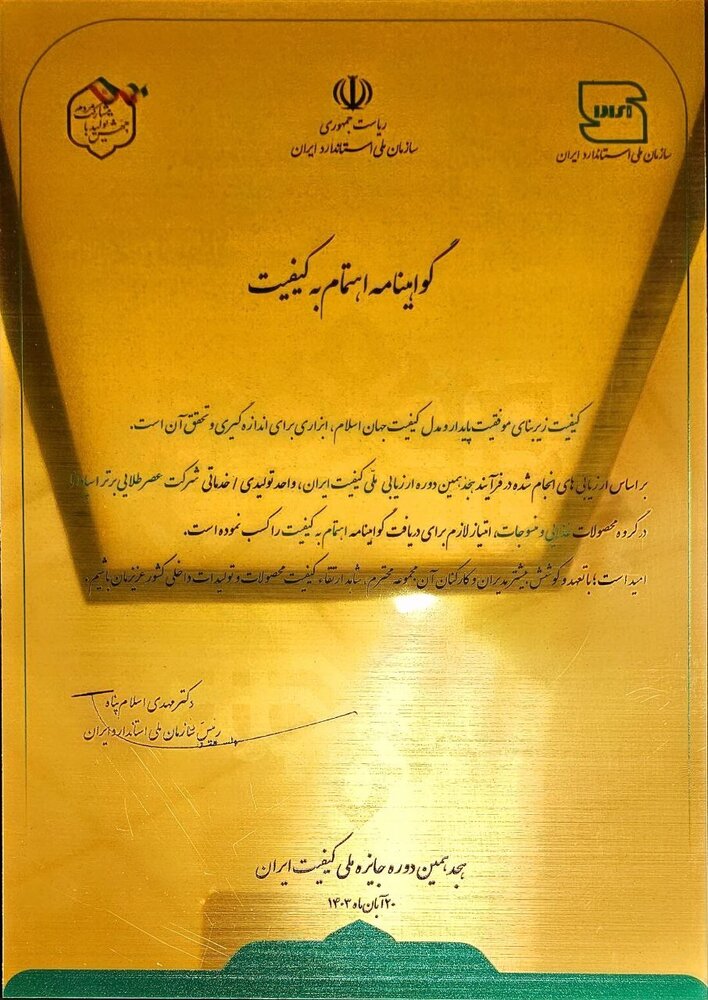 جهش تولید با
مشارکت مردم
ریاست جمهوری
سازمان ملی استاندارد ایران
سازمان ملی استاندارد ایران
گواهینامه اهتمام به کیفیت
کیفیت زیربنای موفقیت پایدار و مدل کیفیت جهان اسلام، ابزاری برای اندازه گیری و تحقق آن است.
بر اساس ارزیابی های انجام شده در فرآیند هجدهمین دوره ارزیابی ملی کیفیت ایران، واحد تولیدی / خدماتی شرکت عصر طلایی برتر
در گروه محصولات غذایی و منسوجات، امتیاز لازم برای دریافت گواهینامه اهتمام به کیفیت را کسب نموده است.
امید است؛ با تعهد و کوشش بیشتر مدیران و کارکنان آن مجموعه محترم، شاهد ارتقاء کیفیت محصولات و تولیدات داخلی کشور عزیزمان باشیم.
دکتر مهدی اسلام پناه
رئیس سازمان ملی استاندارد ایران
هجدهمین دوره جایزه ملی کیفیت ایران
۲۰ آبان ماه ۱۴۰۳